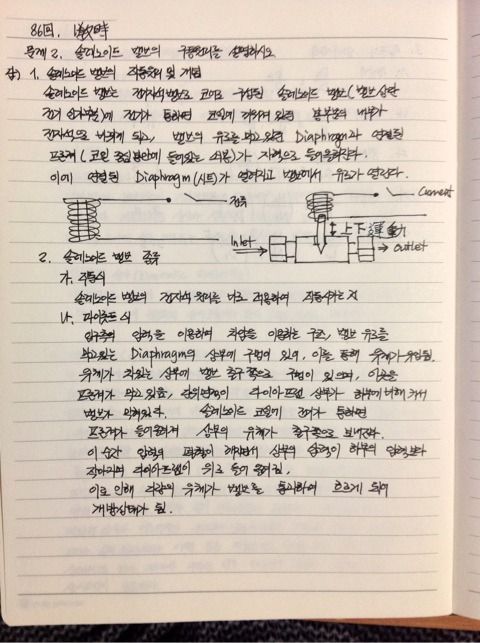 86회. 1教時
문제 2. 솔레노이드 밸브의 구동원리를 설명하시오
답) 1. 솔레노이드 밸브의 작동원리 및 개념
솔레노이드 밸브는 전자식밸브로 코일로 구성된 솔레노이드 밸브(밸브 상단
전기 인가부분)에 전기가 통하면 코일에 감겨져 있던 내부가
전자석으로 바뀌게 되고, 밸브의 유로를 막고 있던 Diaphragm과 연결된
프란져(코일 중심 방안에 들어있는 쇠봉)가 자력으로 들어올려진다.
이에 연결된 Diaphragm(시트)가 열려지고 밸브에서 유로가 열린다.
전류
Current
上下運動
Inlet
Outlet
2. 솔레노이드 밸브 종류
가. 직동식
솔레노이드 밸브의 전자석 원리를 바로 적용하여 작동시키는 것
나. 파이롯트식
입구측의 압력을 이용하여 차압을 이용하는 구조, 밸브 유로를
막고있는 Diaphragm의 상부에 구멍이 있어, 이를 통해 유체가 유입됨.
유체가 차있는 상부에 밸브 출구쪽으로 구멍이 있으며, 이곳을
프란져가 막고 있음, 단위면적이 다이아프램 상부가 하부에 비해 커서
밸브가 막혀있다. 솔레노이드 코일에 전기가 통하면
프란져가 들어올려져 상부의 유체가 출구쪽으로 보내진다.
이 순간 압력의 평형이 깨지면서 상부의 압력이 하부의 압력보다
작아지며 다이아프램이 위로 들어 올려짐,
이로 인해 다량의 유체가 밸브를 통과하여 흐르게 되어
개방상태가 됨.